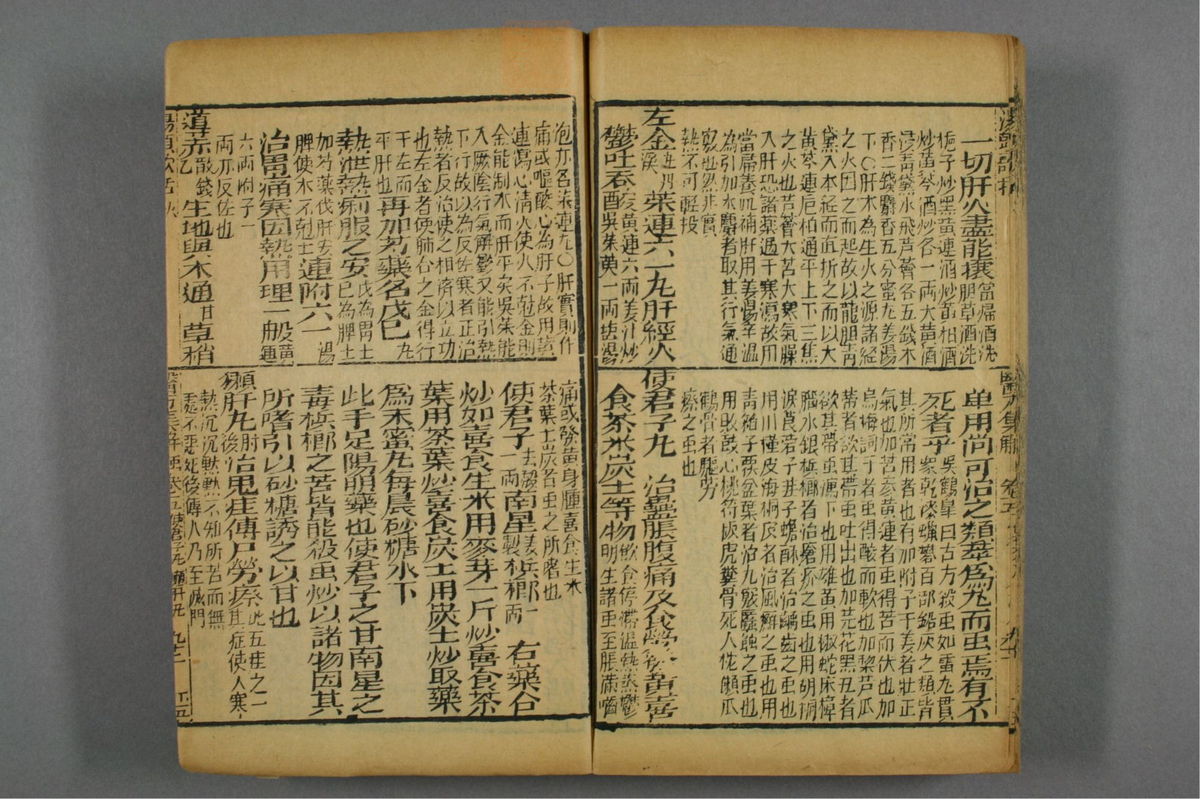 湯頭歌括
一切肝火盡能攘當歸酒洗膽草酒洗
梔子炒黑黃連酒炒黃柏酒
炒黃芩酒炒各一兩大黃酒
浸青黛水飛蘆薈各五錢木
香二錢麝香五分蜜丸姜湯
下〇肝木為生火之源諸經
之火因之而起故以龍膽青
黛入本經而直折之而以大
黃芩連梔柏通平上下三焦
之火也芦薈大苦大寒氣臊
入肝恐諸藥過于寒瀉故用
當歸養血補肝用姜湯辛溫
為引加木麝者取其行氣通
竅也然非實
熱不可輕投
左金 茱連六一丸肝經火
鬱吐吞酸黃連六兩姜汁炒吳茱萸一兩塩湯
醫方集解 卷五
单用尚可治之類葢為丸而虫焉有不
死者乎吳鶴皋曰古方殺虫如雷丸貫眾乾漆蠟塵百部鉛灰之類皆
其所常用者也有加附子干姜者壯正
氣也加苦參黃連者虫得苦而伏也加
烏梅訶子者虫得酸而軟也加藜芦瓜
蒂者欲其帶虫吐出也加芫花黑丑者
欲其帶虫瀉下也用雄黃川椒蛇床樟
腦水銀檳榔者治瘡疥之虫也用胡桐
淚莨菪子韭子蟾酥者治齲齒之虫也
用川槿皮海桐皮者治風癬之虫也用
青葙子覆盆葉者治九竅䘌蝕之虫也
用敗鼓心桃符板虎糞骨死人枕獺爪
鸛骨者驅勞
瘵之虫也
使君子丸 治蠱脹腹痛及食勞發黃喜
食茶米炭土等物飲食停滯溫熱蒸鬱明生諸虫至脹滿嚙
泡亦名茱連丸〇肝實則作
痛或嘔酸心為肝子故用黃
連瀉心清火使火不尅金則
金能制木而肝平矣吳茱能
入厥陰行氣解鬱又能引熱
下行故以為反佐寒者正治
熱者反治使之相濟以立功
也左金者使肺右之金得行
于左而
平肝也再加芍藥名戊己丸
熱泄熱痢服之安戊為胃土己為脾土
加芍藥伐肝安
脾使木不尅土連附六一湯
治胃痛寒因熱用理一般黃連
六兩附子一
兩亦反佐也
導赤散錢乙生地與木通甘草稍
湯頭歌括
痛或發黃身腫喜食生米
茶葉土炭者虫之所嗜也
使君子二兩去殼南星姜製檳榔一兩 右藥合
炒如喜食生米用麥芽一斤炒喜食茶
葉用茶葉炒喜食炭土用炭土炒取藥
為末蜜丸每晨砂糖水下
此手足陽明藥也使君子之甘南星之
毒檳榔之苦皆能殺虫炒以諸物因其
所嗜引以砂糖誘之以甘也
獺肝丸肘後治鬼疰傳尸勞瘵此五疰之一其症使人寒
熱沉沉默默不知所苦而無
處不惡死後傳人乃至滅門